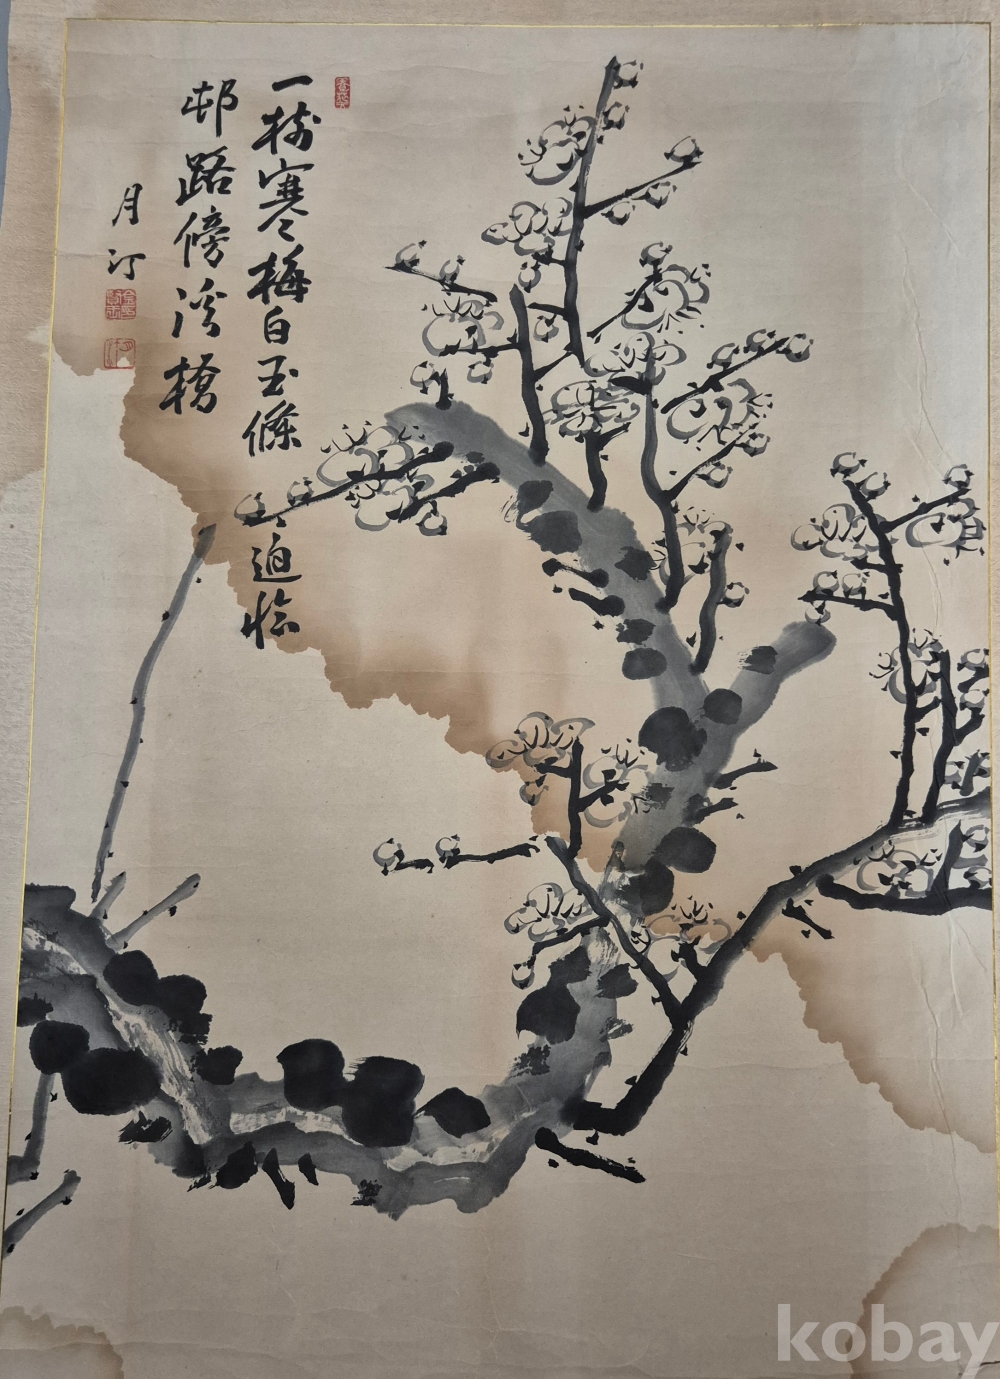 一樹寒梅白玉條逈臨
邨路傍溪橋
月汀
kobay